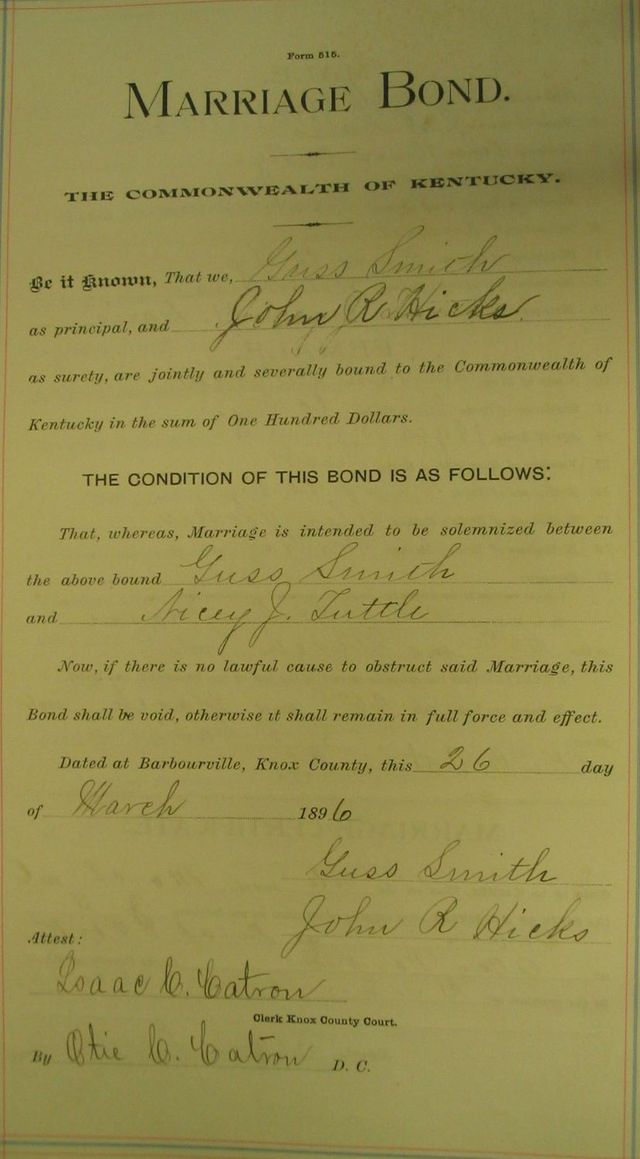 Form 515.
MARRIAGE BOND.
THE COMMONWEALTH OF KENTUCKY.
Be it Known, That we, Guss Smith
as principal, and John R Hicks
as surety, are jointly and severally bound to the Commonwealth of
Kentucky in the sum of One Hundred Dollars.
THE CONDITION OF THIS BOND IS AS FOLLOWS:
That, whereas, Marriage is intended to be solemnized between
the above bound Guss Smith
and Nicey J. Tuttle
Now, if there is no lawful cause to obstruct said Marriage, this
Bond shall be void, otherwise it shall remain in full force and effect.
Dated at Barbourville, Knox County, this 26 day
of March 1896
Guss Smith
John R Hicks
Attest:
Isaac C. Catron
Clerk Knox County Court.
By Otie C. Catron D. C.